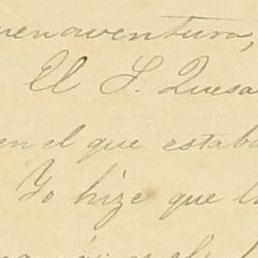 uenaventura,
El S. Quesa
en el que estaba
Yo hize que l